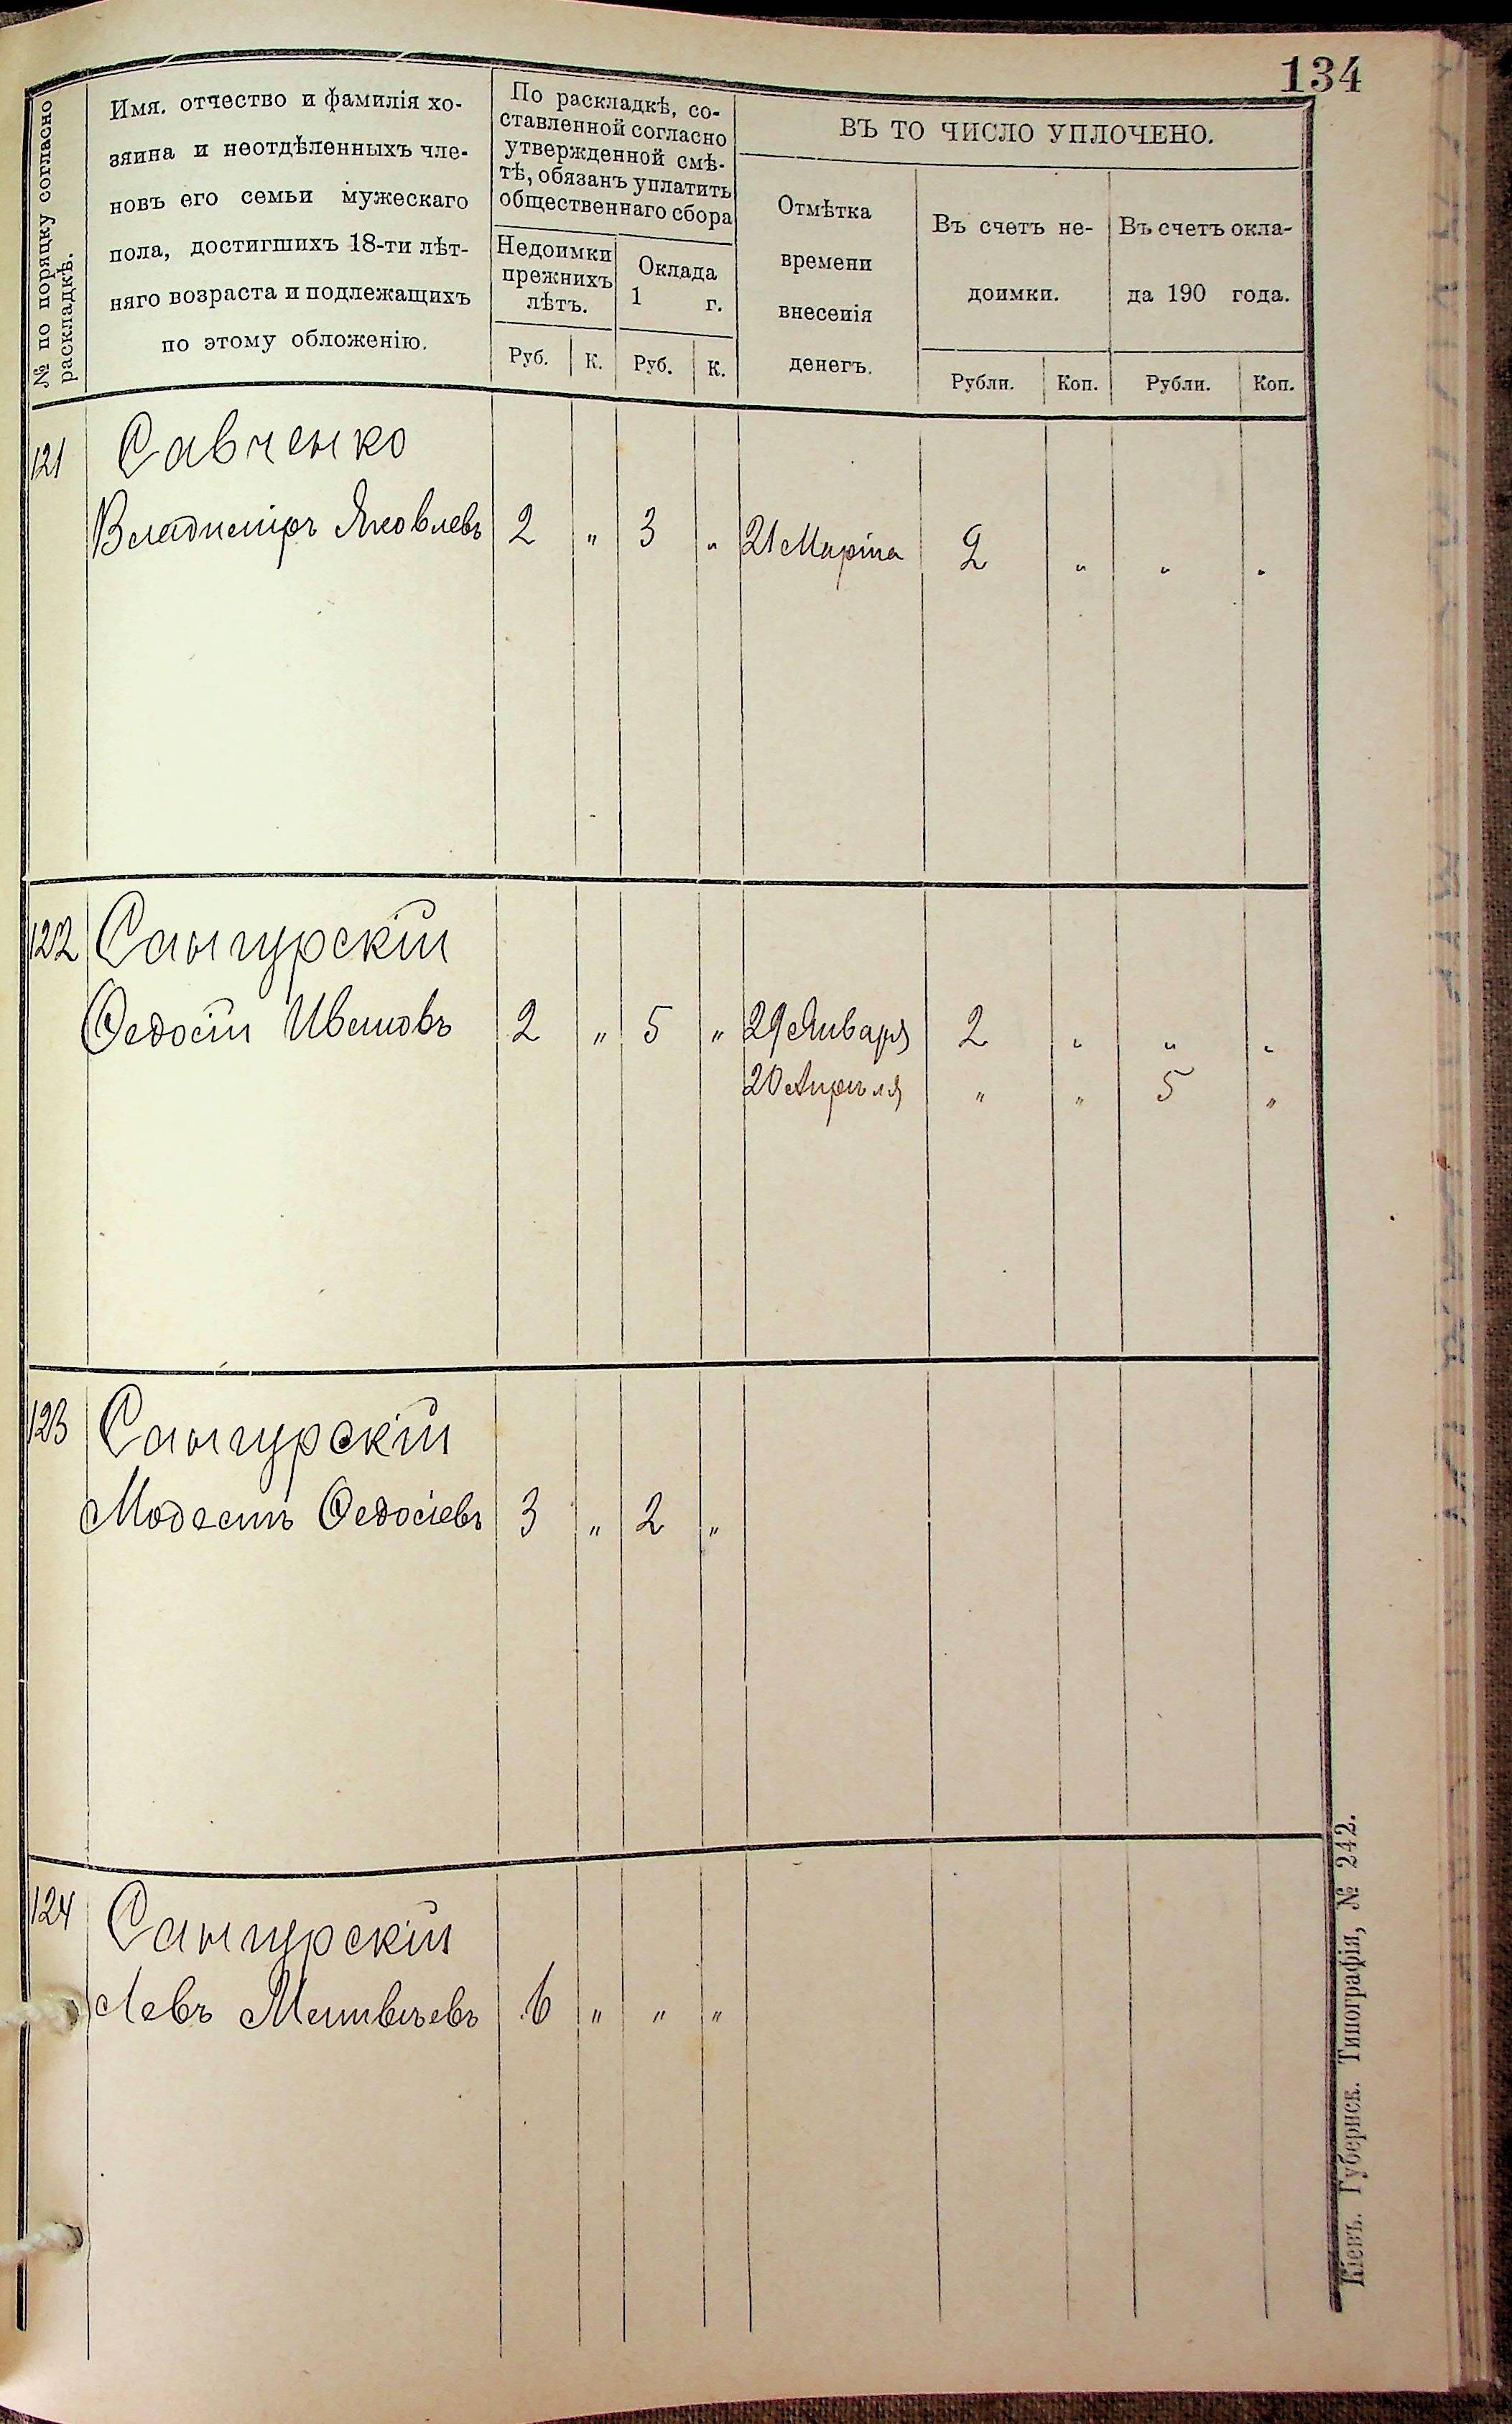 134
№ по порядку согласно
раскладкѣ.
Имя. отчество и фамилія хо-
зяина и неотдѣленныхъ чле-
новъ его семьи мужескаго
пола, достигшихъ 18-ти лѣт-
няго возраста и подлежащихъ
по этому обложенію.
По раскладкѣ, со-
ставленной согласно
утвержденной смѣ-
тѣ, обязанъ уплатить
общественнаго сбора
Недоимки
прежнихъ
лѣтъ.
Оклада
1 г.
Руб. К. Руб. К.
ВЪ ТО ЧИСЛО УПЛОЧЕНО.
Отмѣтка
времени
внесенія
денегъ.
Въ счетъ не-
доимки.
Въ счетъ окла-
да 190 года.
Рубли. Коп. Рубли. Коп.
121 Савченко
Владиміръ Яковлевъ 2 „ 3 „ 21 Марта 2 „ „ „
122 Сангурскій
Ѳедосій Ивановъ 2 „ 5 „ 29 Января 2 „ „ „
20 Апрѣля „ „ 5 „
123 Сангурскій
Модестъ Ѳедосіевъ 3 „ 2 „
124 Сангурскій
Левъ Матвѣевъ 6 „ „ „
Кіевъ. Губернск. Типографія, № 242.